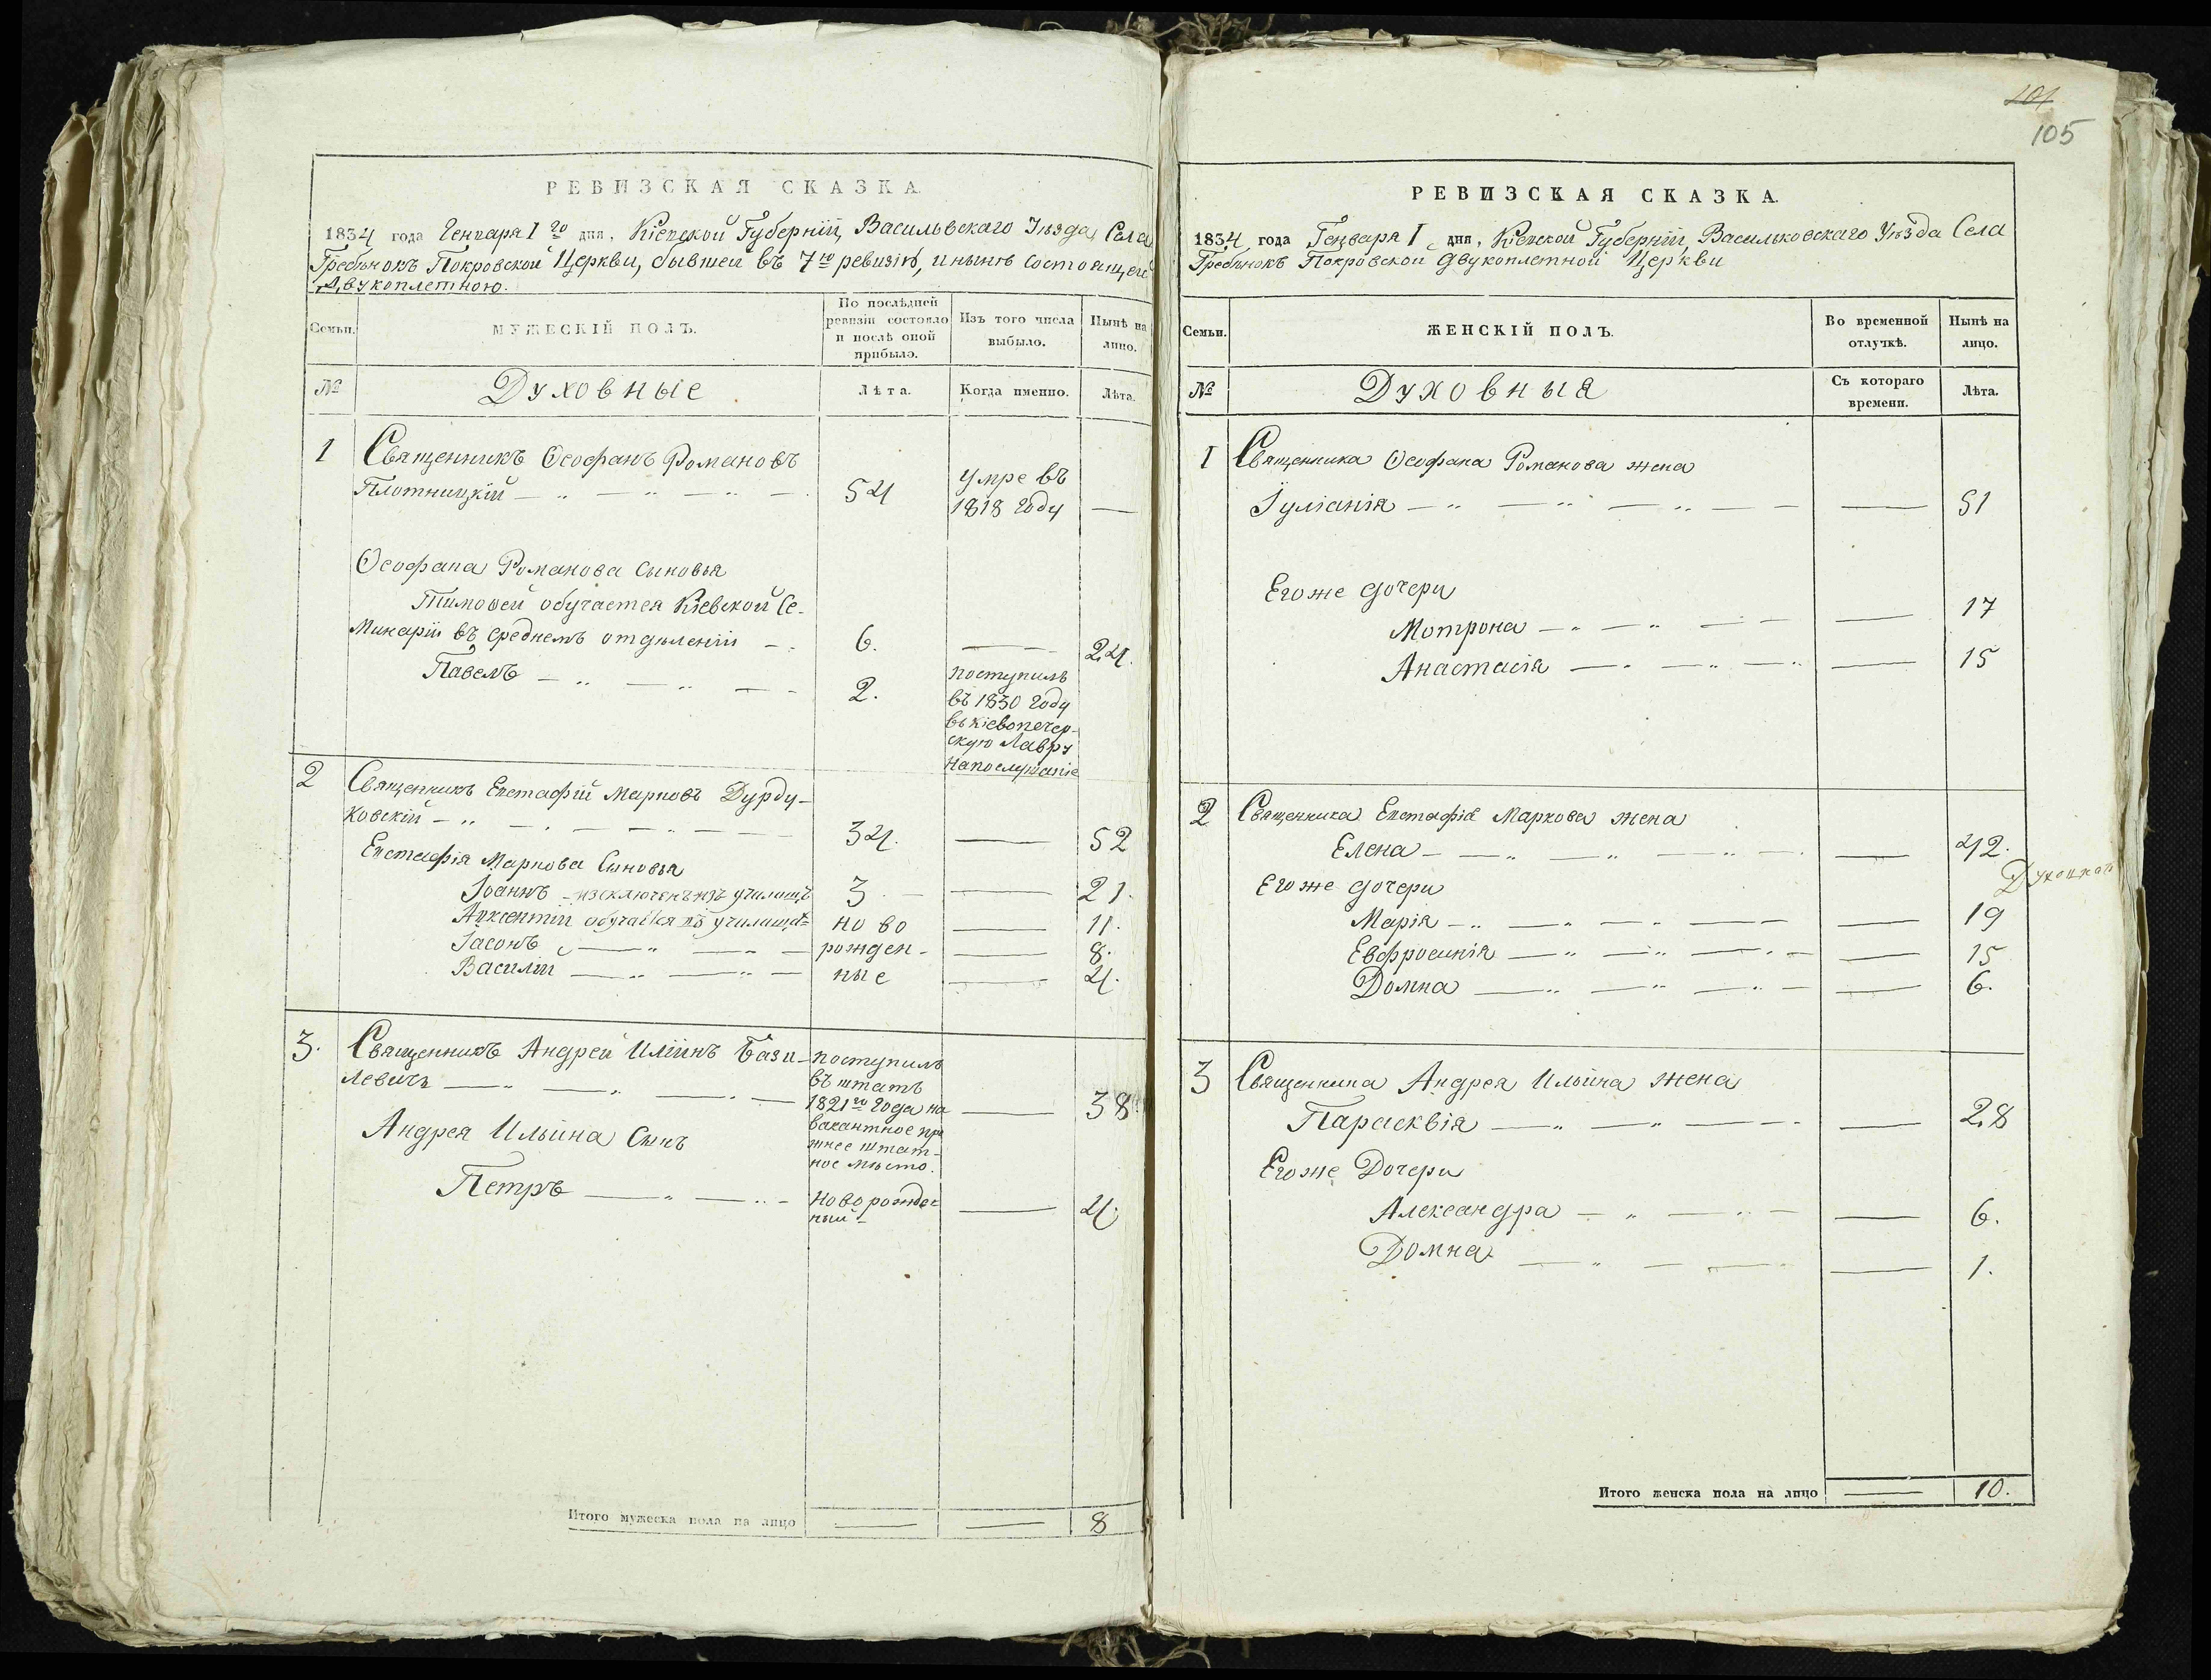 РЕВИЗСКАЯ СКАЗКА.
1834 года Генваря 1го дня, Кіевской Губерніи, Васильвскаго Уѣзда, Села
Гребѣнокъ Покровской Церкви, бывшей въ 7ю ревизію, и нынѣ состоящей
Двукоплетною.
Семьи.
МУЖЕСКІЙ ПОЛЪ.
По послѣдней
ревизіи состояло
и послѣ оной
прибыло.
Изъ того числа
выбыло.
Нынѣ на
лицо.
№
Духовные
Лѣта.
Когда именно.
Лѣта.
1 Священникъ Ѳеофанъ Романовъ
Плотницкій — „ — „ — „ — 54
Умре въ
1818 году —
Ѳеофана Романова сыновья
Тимоѳей обучается Кіевской Се-
минаріи въ среднемъ отдѣленіи — 6. — 24.
Павелъ — „ — „ — 2.
поступилъ
въ 1830 году
въ кіевопечер-
скую Лавру
на послушаніе
2 Священникъ Евстафій Марковъ Дурду-
ковскій — „ — 34. — 52
Евстафія Маркова Сыновья
Іоаннъ — изключенъ изъ училищъ 3 — 21.
Авксентій обучается въ училищѣ ново — 11.
Іасонъ — „ — рожден- — 8.
Василій — „ — „ — ные — 4.
3. Священникъ Андрей Иліинъ Бази-
левичъ — „ — „ —
поступилъ
въ штатъ
1821го года на
вакантное пре
жнее штат-
ное мѣсто.
— 38
Андрея Ильина Сынъ
Петръ — „ — „ — Новорожден
ный — — 4.
Итого мужеска пола на лицо — — 8
101
105
РЕВИЗСКАЯ СКАЗКА.
1834 года Генваря 1 дня, Кіевской Губерніи, Васильковскаго Уѣзда Села
Гребѣнокъ Покровской двукоплетной Церкви
Семьи.
ЖЕНСКІЙ ПОЛЪ.
Во временной
отлучкѣ.
Нынѣ на
лицо.
№
Духовныя
Съ котораго
времени.
Лѣта.
1 Священника Ѳеофана Романова жена
Іуліанія — „ — „ — „ — — 51
Егоже дочери
Мотрона — „ — „ — — 17
Анастасія — „ — „ — „ — 15
2 Священника Евстафія Маркова жена
Елена — — „ — „ — „ — — 42.
Егоже дочери
Марія — „ — „ — „ — — 19
Евфросинія — „ — „ — „ — — 15
Домна — „ — „ — „ — — 6.
3 Священника Андрея Ильина жена
Парасквія — „ — „ — — 28
Егоже Дочери
Александра — „ — „ — — 6.
Домна — „ — — — 1.
Итого женска пола на лицо — 10.